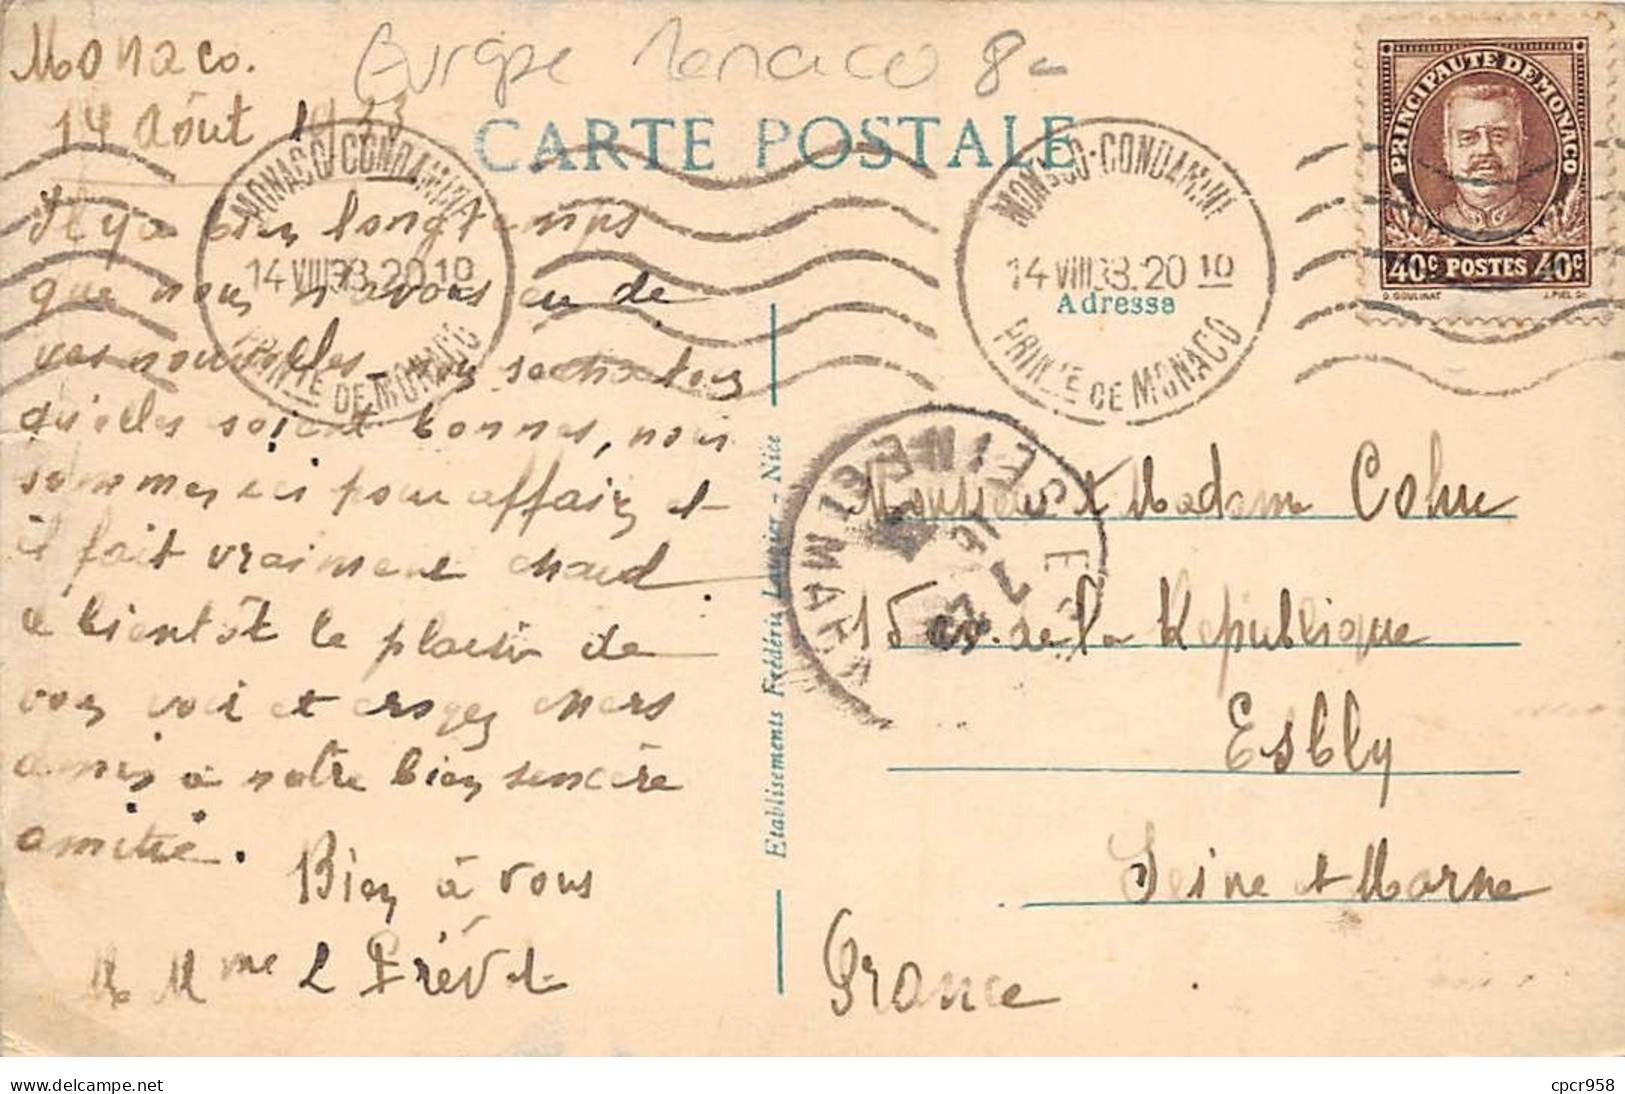 Monaco.
14 Août 1933
Europe Monaco 8-
CARTE POSTALE
PRINCIPAUTE DE MONACO
40c POSTES 40c
G. GOULINAT J. PIEL Sc.
MONACO-CONDAMINE
14 VIII 33. 20 10
PRINCTE DE MONACO
MONACO-CONDAMINE
14 VIII 33. 20 10
PRINCTE DE MONACO
Adresse
Il y a bien longtemps
que nous n'avons eu de
vos nouvelles nous souhaitons
qu'elles soient bonnes, nous
sommes ici pour affaires et
il fait vraiment chaud.
a bientôt le plaisir de
vous voir et croyez chers
amis à notre bien sencère
amitié.
Bien à vous
M Mme L Prévot
Etablissements Frédéric Laugier - Nice
SEINE ET MAR
Monsieur et Madame Cohu
15 av. de la République
Esbly
Seine et Marne
France
delcampe.net
cpcr958